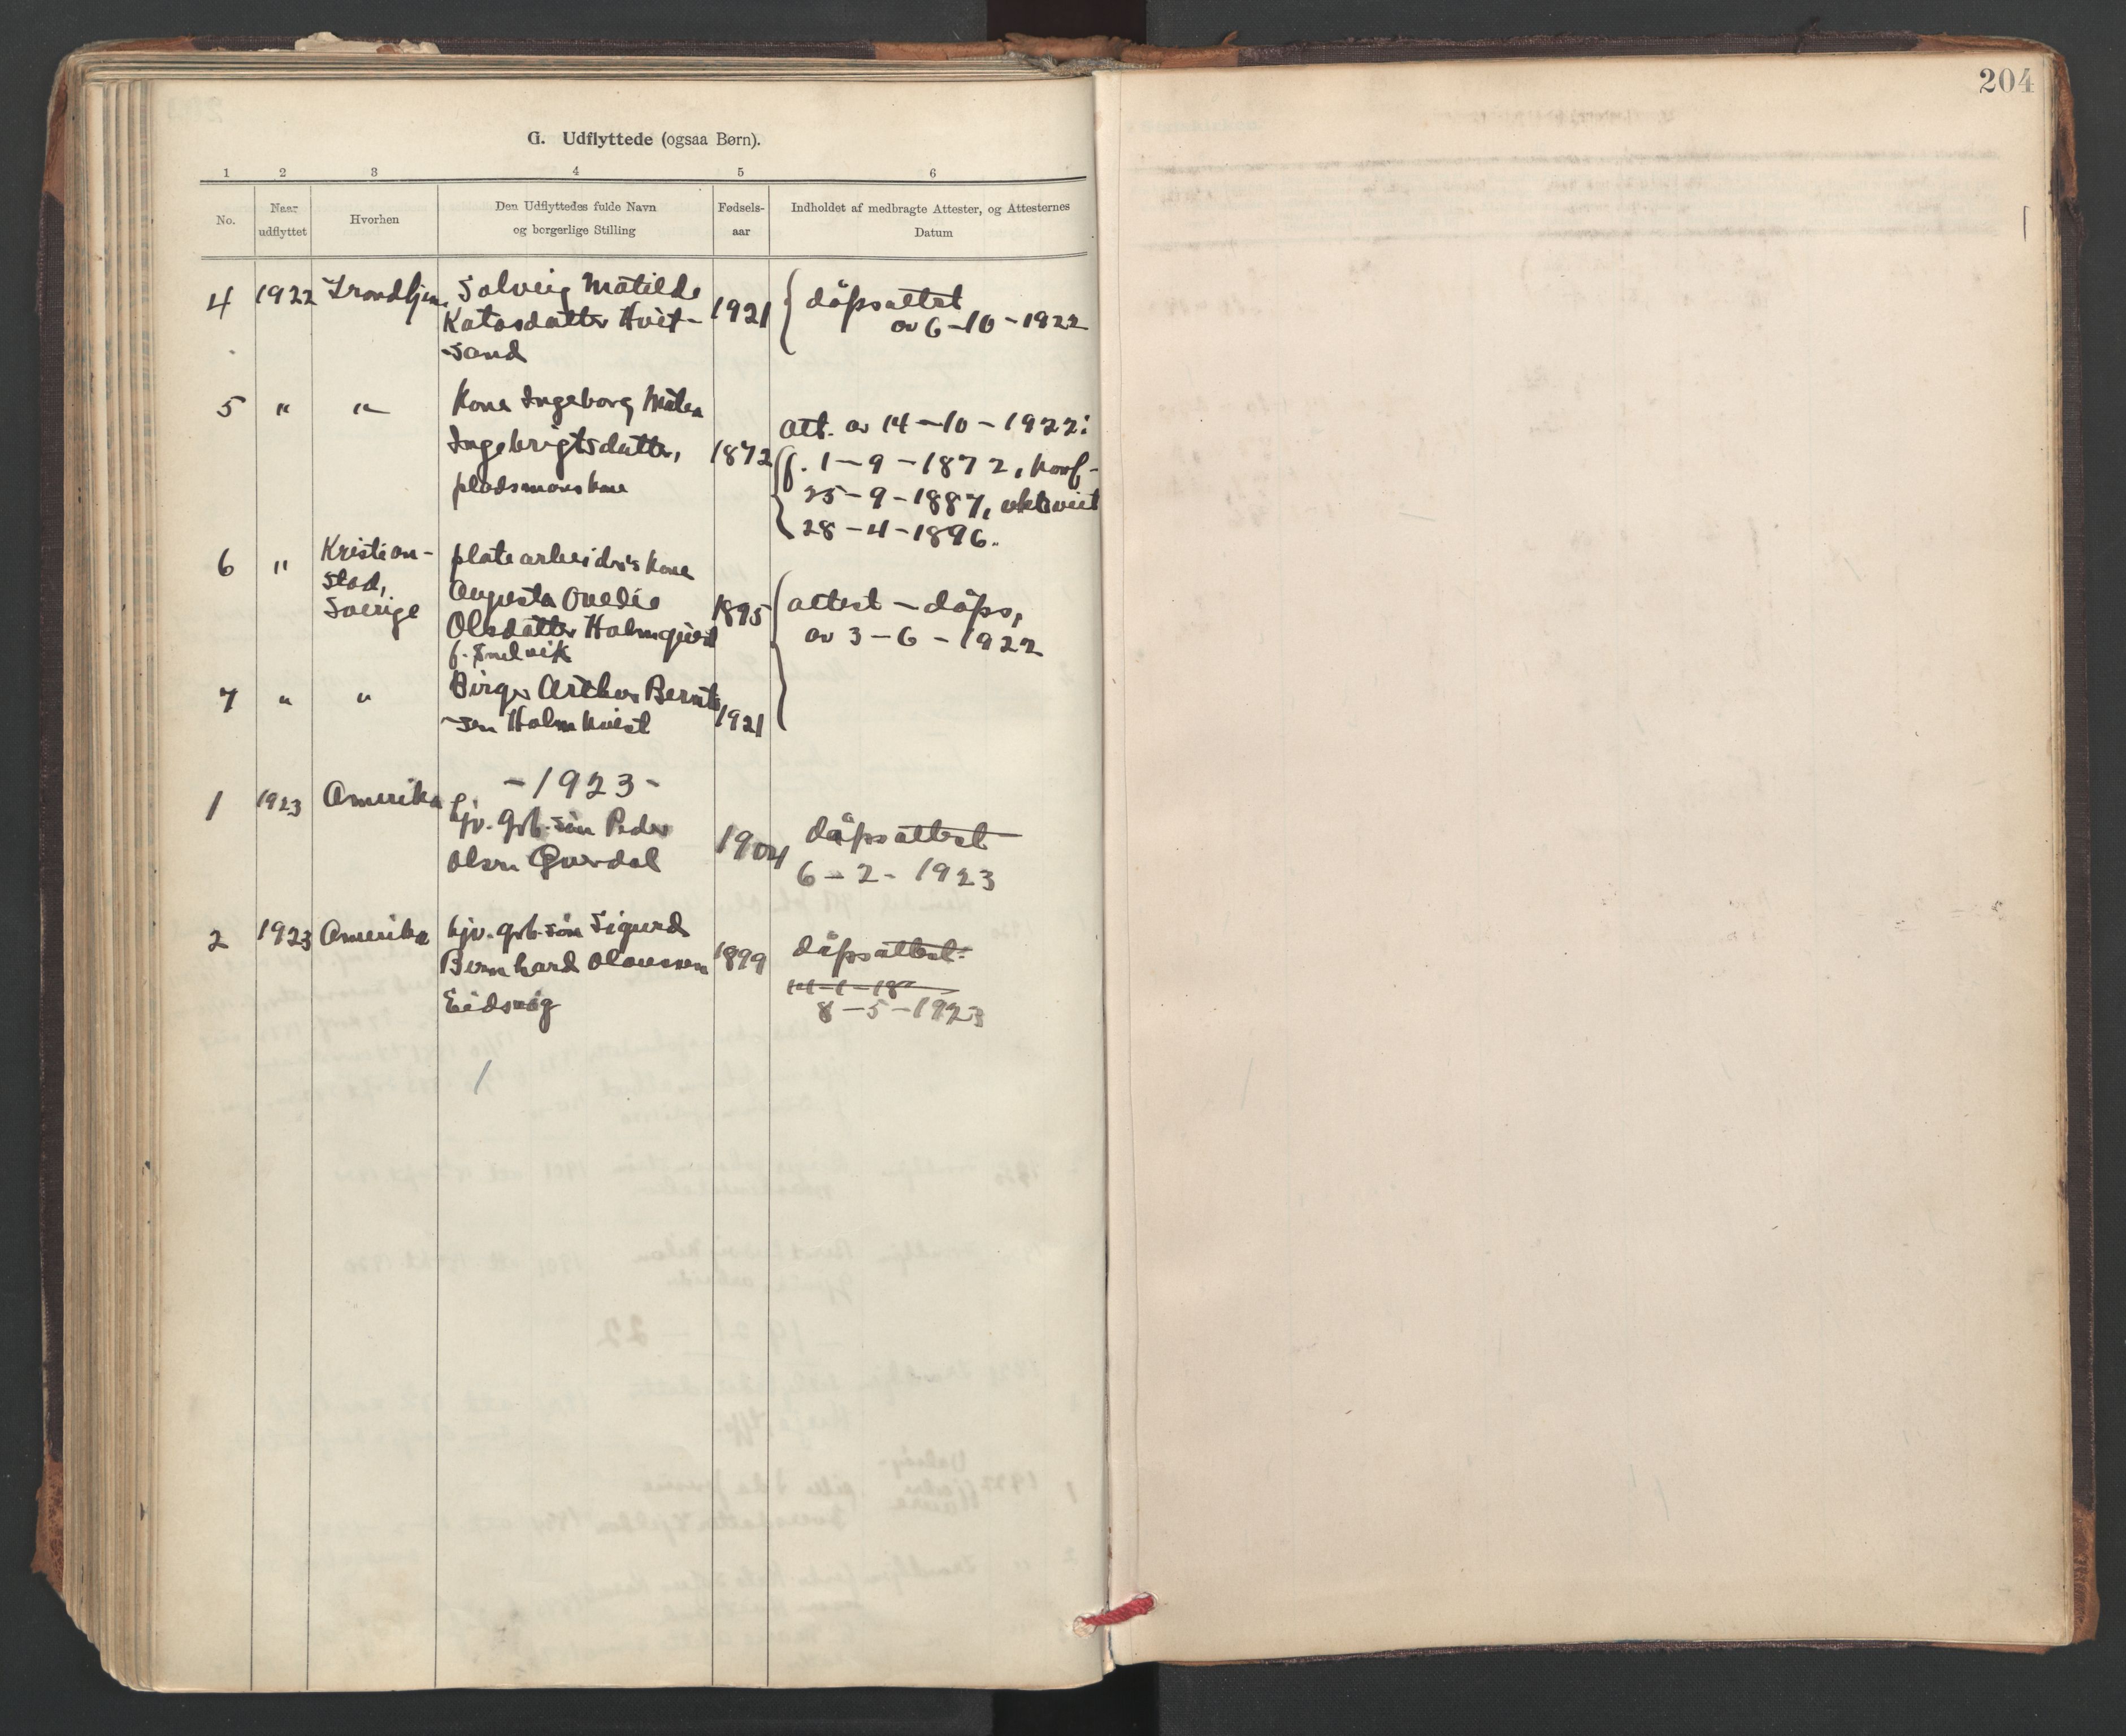 204
G. Udflyttede (ogsaa Børn).
1 2 3 4 5 6
No. Naar udflyttet Hvorhen Den Udflyttedes fulde Navn og borgerlige Stilling Fødsels-aar Indholdet af medbragte Attester, og Attesternes Datum
4 1922 Trondhjem Solveig Matilde 1921 dåpsattest
Katasdatter Hvit- av 6-10-1922
sand
5 " " Kone Ingeborg
Ingebrigtsdatter, 1872 att. av 14-10-1922:
pladsmannskone f. 1-9-1872, konf.
25-9-1887, ekteviet
28-4-1896.
6 " Kristian- platearbeiders kone
stad, Augusta Ovedie 1895 attest - dåps,
Sverige Olsdatter Holmqvist av 3-6-1922
f.
7 " " Birger Arthur Bernt-
sen Holmkvist 1921
-1923-
1 1923 Amerika hjv. grb. søn Peder 1904 dåpsattest
Olsen 6-2-1923
2 1923 Amerika hjv. grb. søn Sigurd dåpsattest
Bernhard Olaussen 1899
Eidsvåg 8-5-1923